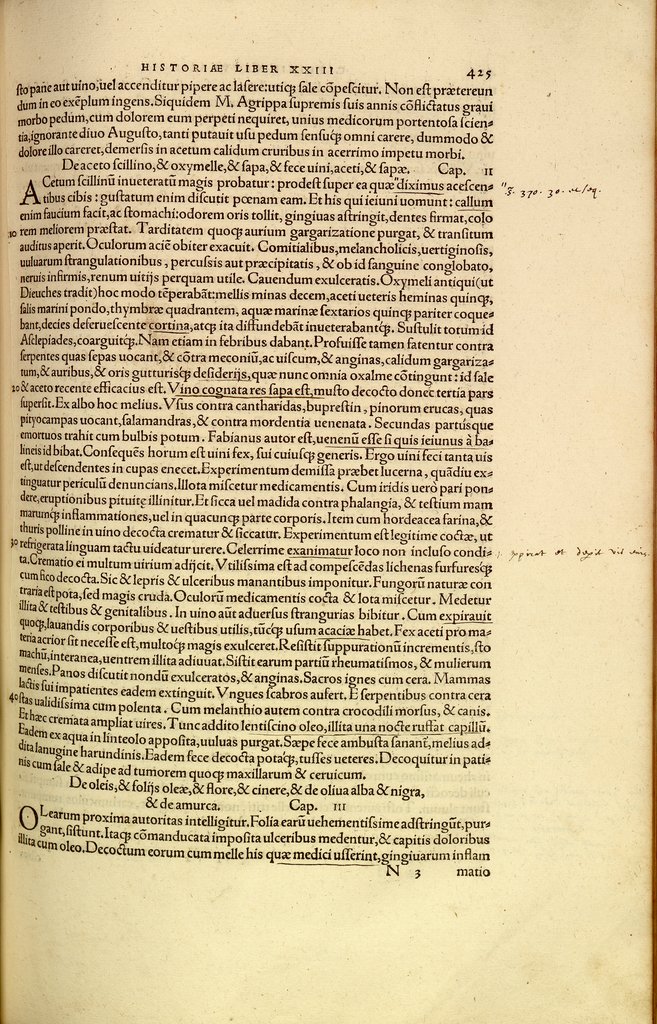 HISTORIAE LIBER XXIII 425
sto pane aut uino, uel accenditur pipere ac lasere: utiq; sale cōpescitur. Non est prætereun
dum in eo exēplum ingens. Siquidem M. Agrippa supremis suis annis cōflictatus graui
morbo pedum, cum dolorem eum perpeti nequiret, unius medicorum portentosa scien-
tia, ignorante diuo Augusto, tanti putauit usu pedum sensuq; omni carere, dummodo &
dolore illo careret, demersis in acetum calidum cruribus in acerrimo impetu morbi.
De aceto scillino, & oxymelle, & sapa, & fece uini, aceti, & sapæ. Cap. II
ACetum scillinū inueteratū magis probatur: prodest super ea quæ diximus acescen-
tibus cibis: gustatum enim discutit pœnam eam. Et his qui ieiuni uomunt: callum
enim faucium facit, ac stomachi: odorem oris tollit, gingiuas astringit, dentes firmat, colo
10 rem meliorem præstat. Tarditatem quoq; aurium gargarizatione purgat, & transitum
auditus aperit. Oculorum aciē obiter exacuit. Comitialibus, melancholicis, uertiginosis,
uuluarum strangulationibus, percussis aut præcipitatis, & ob id sanguine conglobato,
neruis infirmis, renum uitijs perquam utile. Cauendum exulceratis. Oxymeli antiqui (ut
Dieuches tradit) hoc modo tēperabāt: mellis minas decem, aceti ueteris heminas quinq;,
salis marini pondo, thymbræ quadrantem, aquæ marinæ sextarios quinq; pariter coque-
bant, decies deferuescente cortina, atq; ita diffundebāt inueterabantq;. Sustulit totum id
Asclepiades, coarguitq;. Nam etiam in febribus dabant. Profuisse tamen fatentur contra
serpentes quas sepas uocant, & cōtra meconiū, ac uiscum, & anginas, calidum gargariza-
tum, & auribus, & oris gutturisq; desiderijs, quæ nunc omnia oxalme cōtingunt: id sale
20 & aceto recente efficacius est. Vino cognata res sapa est, musto decocto donec tertia pars
supersit. Ex albo hoc melius. Vsus contra cantharidas, buprestin, pinorum erucas, quas
pityocampas uocant, salamandras, & contra mordentia uenenata. Secundas partusque
emortuos trahit cum bulbis potum. Fabianus autor est, uenenū esse si quis ieiunus à ba-
lineis id bibat. Consequēs horum est uini fex, sui cuiusq; generis. Ergo uini feci tanta uis
est, ut descendentes in cupas enecet. Experimentum demissa præbet lucerna, quādiu ex-
tinguatur periculū denuncians. Illota miscetur medicamentis. Cum iridis uerò pari pon-
dere, eruptionibus pituitę illinitur. Et sicca uel madida contra phalangia, & testium mam
marumq; inflammationes, uel in quacunq; parte corporis. Item cum hordeacea farina, &
thuris polline in uino decocta crematur & siccatur. Experimentum est legitime coctæ, ut
30 refrigerata linguam tactu uideatur urere. Celerrime exanimatur loco non incluso condi-
ta. Crematio ei multum uirium adijcit. Vtilissima est ad compescēdas lichenas furfuresq;
cum fico decocta. Sic & lepris & ulceribus manantibus imponitur. Fungorū naturæ con
traria est pota, sed magis cruda. Oculorū medicamentis cocta & lota miscetur. Medetur
illita & testibus & genitalibus. In uino aūt aduersus strangurias bibitur. Cum expirauit
quoq;, lauandis corporibus & uestibus utilis, tūcq; usum acaciæ habet. Fex aceti pro ma-
teria acrior sit necesse est, multoq; magis exulceret. Resistit suppurationū incrementis, sto
machū, interanea, uentrem illita adiuuat. Sistit earum partiū rheumatismos, & mulierum
menses. Panos discutit nondū exulceratos, & anginas. Sacros ignes cum cera. Mammas
lactis sui impatientes eadem extinguit. Vngues scabros aufert. E serpentibus contra cera
40 stas ualidissima cum polenta. Cum melanthio autem contra crocodili morsus, & canis.
Et hæc cremata ampliat uires. Tunc addito lentiscino oleo, illita una nocte ruffat capillū.
Eadem ex aqua in linteolo apposita, uuluas purgat. Sæpe fece ambusta sanant, melius ad-
dita lanugine harundinis. Eadem fece decocta potaq;, tusses ueteres. Decoquitur in pati-
nis cum sale & adipe ad tumorem quoq; maxillarum & ceruicum.
De oleis, & folijs oleæ, & flore, & cinere, & de oliua alba & nigra,
& de amurca. Cap. III
OLearum proxima autoritas intelligitur. Folia earū uehementissime adstringūt, pur-
gant, sistunt. Itaq; cōmanducata imposita ulceribus medentur, & capitis doloribus
illita cum oleo. Decoctum eorum cum melle his quæ medici usserint, gingiuarum inflam
N 3 matio